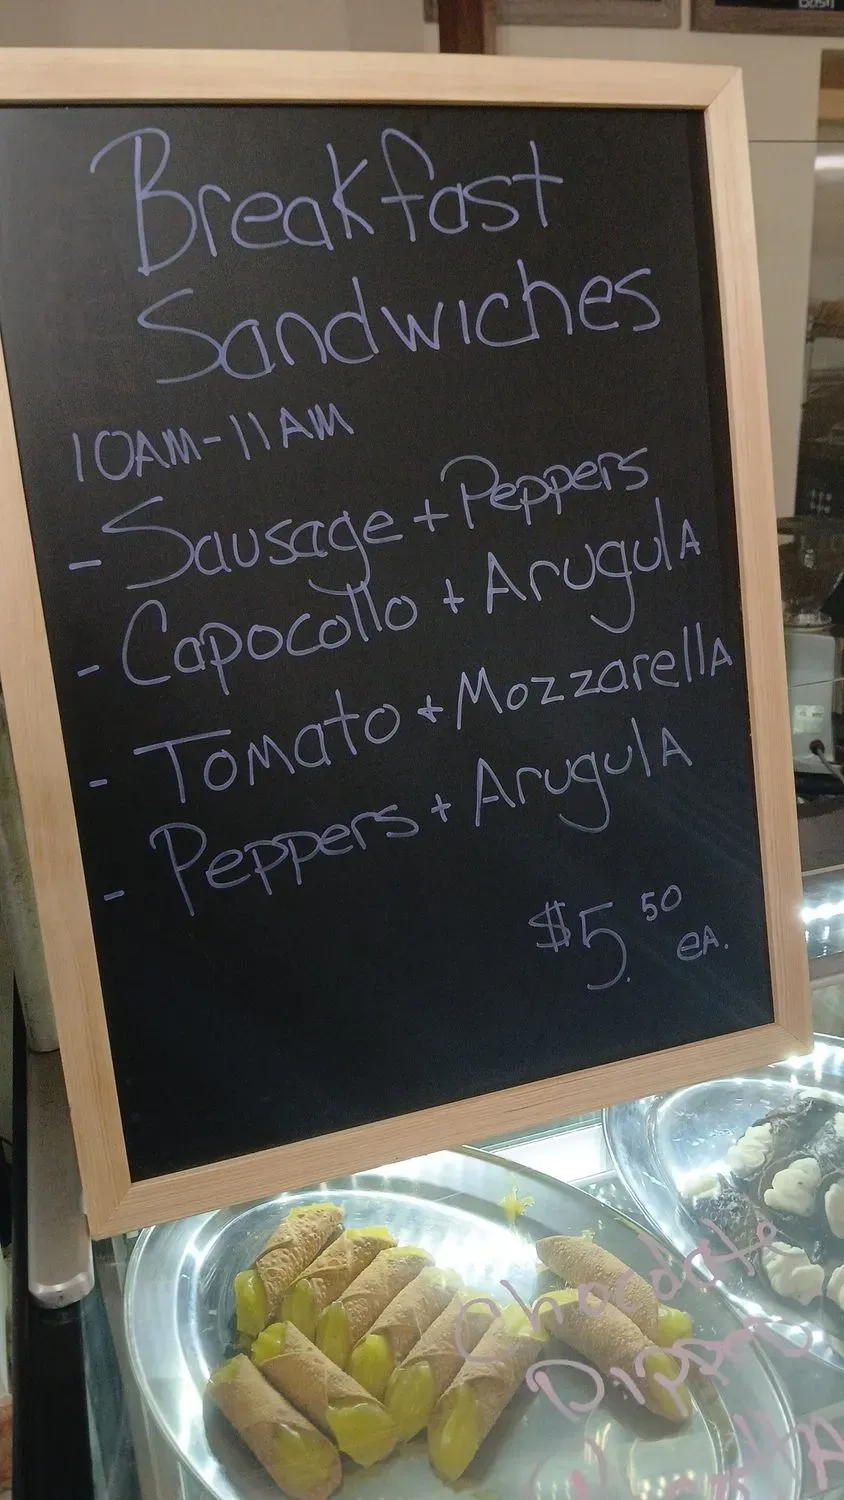 Breakfast
Sandwiches
10AM-11AM
- Sausage + Peppers
- Capocollo + ArugulA
- Tomato + MozzarellA
- Peppers + ArugulA
$5.50 eA.
Chocolate